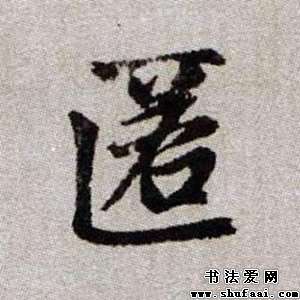 匿
书法爱网
www.shufaai.com